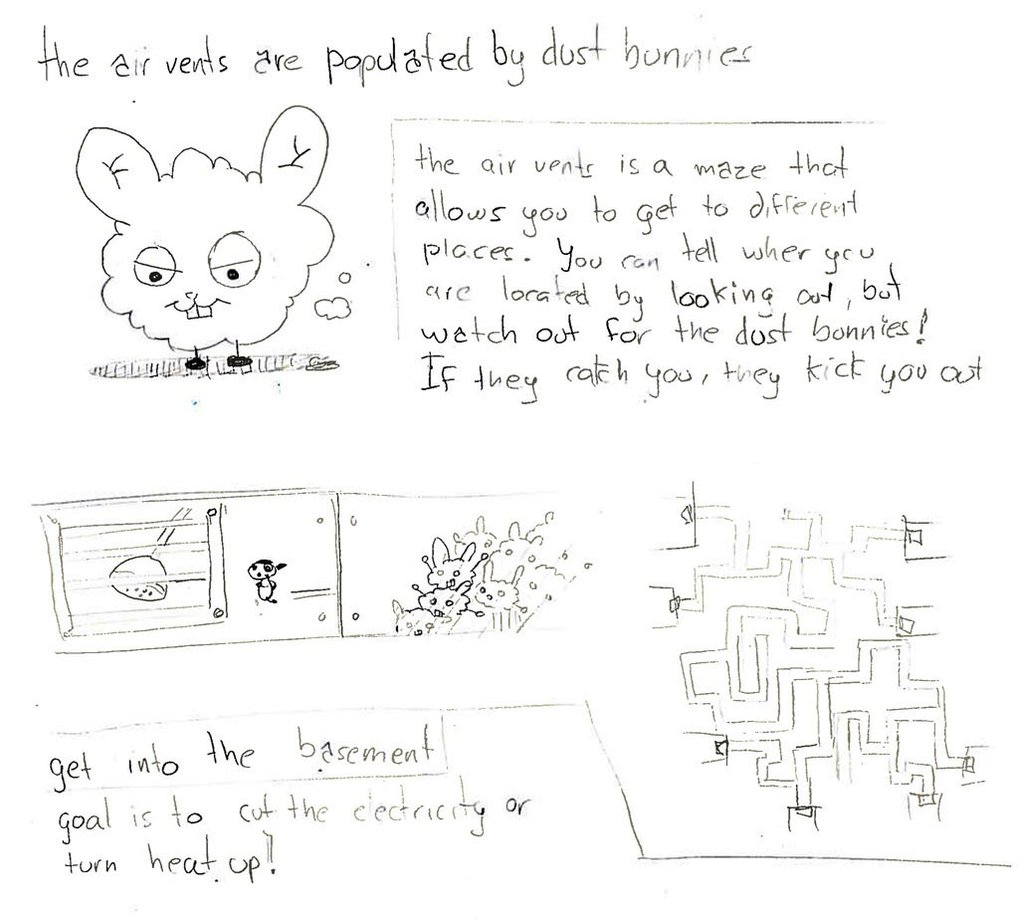 the air vents are populated by dust bunnies
the air vents is a maze that
allows you to get to different
places. You can tell wher you
are located by looking out, but
watch out for the dust bonnies!
If they catch you, they kick you out
get into the basement
goal is to cut the electricity or
turn heat up!